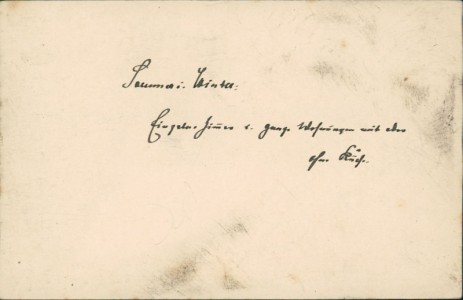 Sommer i. Winter:
Einzelne Zimmer u. ganze Wohnungen mit oder
ohne Küche.